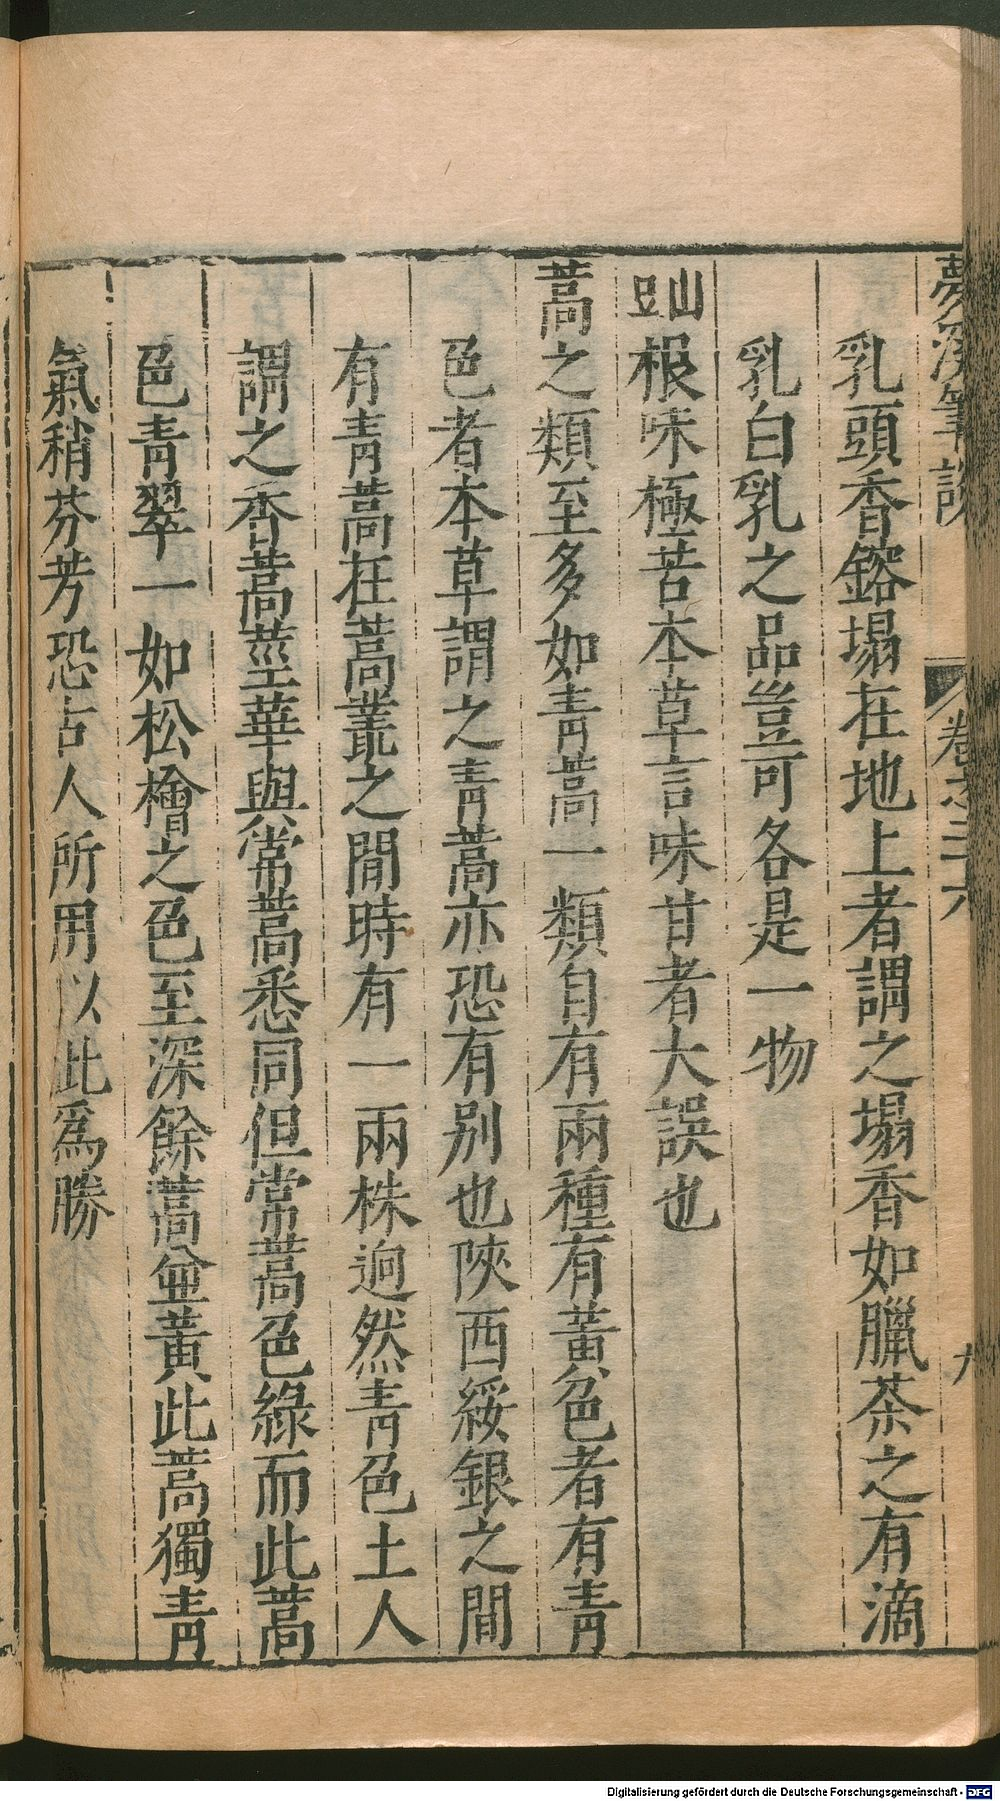 夢溪筆談 卷之二十六 九
乳頭香鎔塌在地上者謂之塌香如臘茶之有滴
乳白乳之品豈可各是一物
山豆根味極苦本草言味甘者大誤也
蒿之類至多如青蒿一類自有兩種有黃色者有青
色者本草謂之青蒿亦恐有别也陝西綏銀之間
有青蒿在蒿叢之間時有一兩株迥然青色土人
謂之香蒿莖葉與常蒿悉同但常蒿色綠而此蒿
色青翠一如松檜之色至深餘蒿並黃此蒿獨青
氣稍芬芳恐古人所用以此爲勝
Digitalisierung gefördert durch die Deutsche Forschungsgemeinschaft - DFG